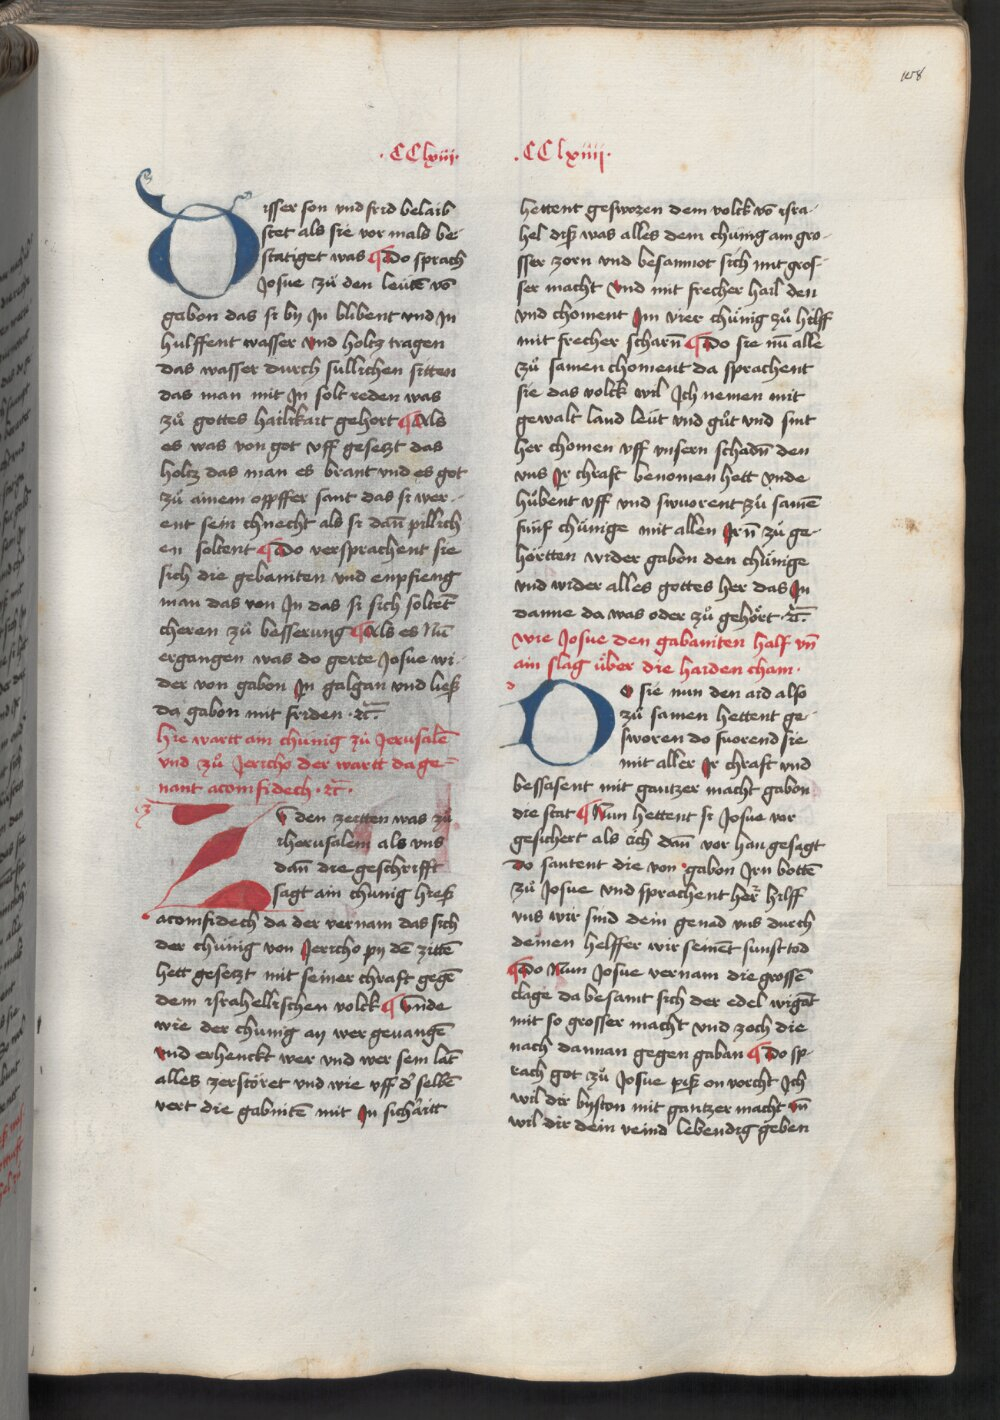 158
·CClxiii·
Disser son vnd frid belaib
stet als sie vor mals be-
statiget was ¶ Do sprach
Josue zuͦ den leuͤtē vō
gabon das si by Jn blibent vnd Jn
hulffent wasser vnd holtz tragen
das wasser durch sullichen sitten
das man mit Jn solt reden was
zuͦ gottes hailikait gehort ¶ Als
es was von got vff gesetzt das
holtz das man es brant vnd es got
zuͦ ainem opffer sant das si wer-
ent sein chnecht als si dan̄ pillich
en soltent ¶ Do versprachent sie
sich die gebaniten vnd enpfieng
man das von Jn das si sich soltēt
cheren zuͦ besserung ¶ Als es Nū
ergangen was do gerte Josue wi-
der von gabon Jn galgan vnd ließ
da gabon mit friden ·ꝛc̄·
hie wartt ain chunig zuͦ Jerusalē
vnd zuͦ Jericho der wartt da ge-
nant aconfidech ·ꝛc̄·
Zv den zeitten was zuͦ
iherusalem als vns
dan̄ die geschrifft
sagt ain chunig hieß
aconfidech da der vernam das sich
der chuͤnig von Jericho py dē zittē
hett gesetzt mit seiner chraft gegē
dem israhellischen volck ¶ vnde
wie der chunig an wer geuangē
vnd erhenckt wer vnd wer sein lāt
alles zerstoͤret vnd wie vff dˢ selbē
vert die gabnitē mit Jn sich aͤritt
·CClxiiii·
hettent gesworen dem volck vō isra-
hel diß was alles dem chuͤnig ain gro-
sser zorn vnd besannot sich mit gros-
ser macht vnd mit frecher hail den
vnd choment Jm vier chuͤnig zuͦ hilff
mit frecher scharn̄ ¶ Do sie nuͦ alle
zuͦ samen choment da sprachent
sie das volck wil Jch nemen mit
gewalt land leuͤt vnd guͦt vnd sint
her chomen vff vnsern schadn̄ den
vns Jr chraft benomen hett vnde
huͦbent vff vnd swuorent zuͦ samē
fuͤnf chuͤnige mit allen Jrn̄ zuͦ ge-
hoͤrtten wider gabon den chuͤnige
vnd wider alles gottes her das Jn
danne da was oder zuͦ gehoͤrt ·ꝛc̄·
wie Josue den gabaniten half vn̄
ain slag uͤber die haiden cham·
Do sie nun den aid also
zuͦ samen hettent ge-
sworen do fuorend sie
mit aller Jr chraft vnd
bessasent mit gantzer macht gabon
die stat ¶ Nun hettent si Josue vor
gesichert als ich dan̄ vor han gesagt
do santent die von gabon Jrn bottē
zuͦ Josue vnd sprachent her hilff
vns wir sind dein genad vns durch
deinen helffer wir seinēt sunst tod
¶ Do Nun Josue vernam die grossē
clage da besamt sich der edel wigāt
mit so grosser macht vnd zoch die
nach dannan gegen gaban ¶ Do sp-
rach got zuͦ Josue piß on vorcht Jch
wil dir byston mit gantzer macht vn̄
wil dir dein veind lebendig geben